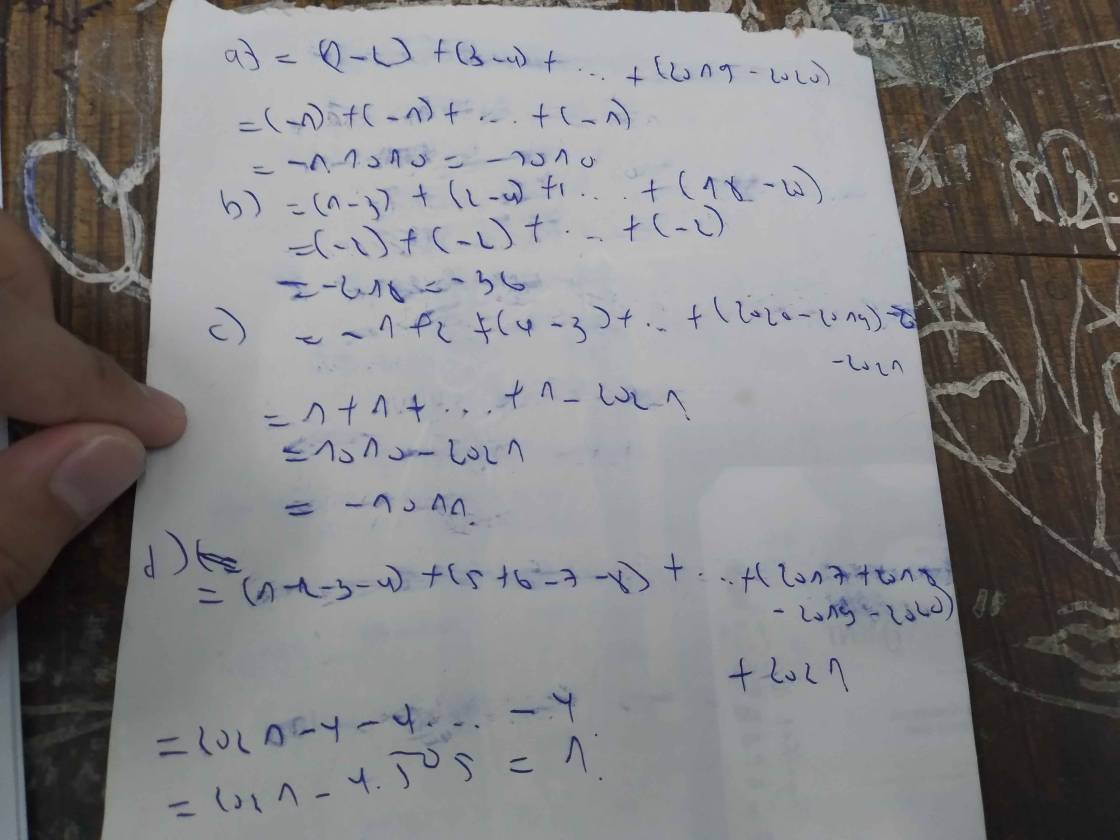 a) = (1-2) + (3-4) + ... + (2019 - 2020)
= (-1) + (-1) + ... + (-1)
= -1.1010 = -1010
b) = (1-3) + (2-4) + ... + (18 - 20)
= (-2) + (-2) + ... + (-2)
= -2.18 = -36
c) = -1 + 2 + (4-3) + ... + (2020 - 2019)
- 2021
= 1 + 1 + ... + 1 - 2021
= 1010 - 2021
= -1011.
d)
= (1+2-3-4) + (5+6-7-8) + ... + (2017 + 2018
- 2019 - 2020)
+ 2021
= 2021 - 4 - 4 ... - 4
= 2021 - 4.505 = 1.